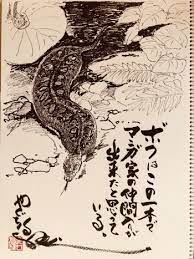 ボクはこの一本で
マンガ家の仲間入りが
出来たと思って
いる。